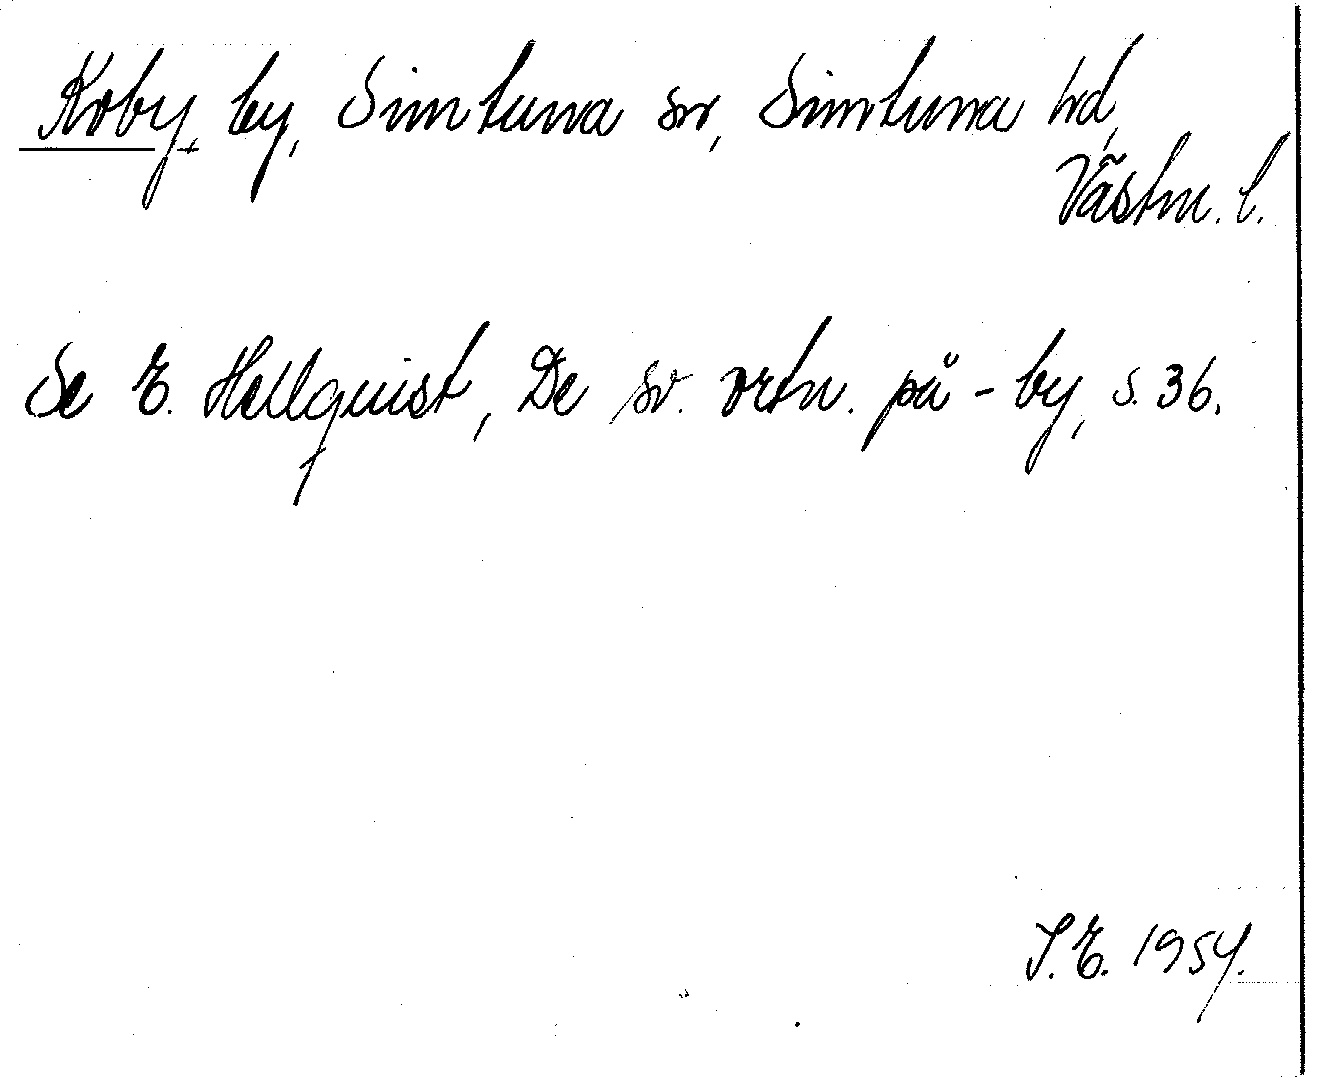 Koby, by, Simtuna sn, Simtuna hd,
Västm. l.
Se E. Hellquist, De sv. ortn. på -by, s. 36.
S.E. 1954.